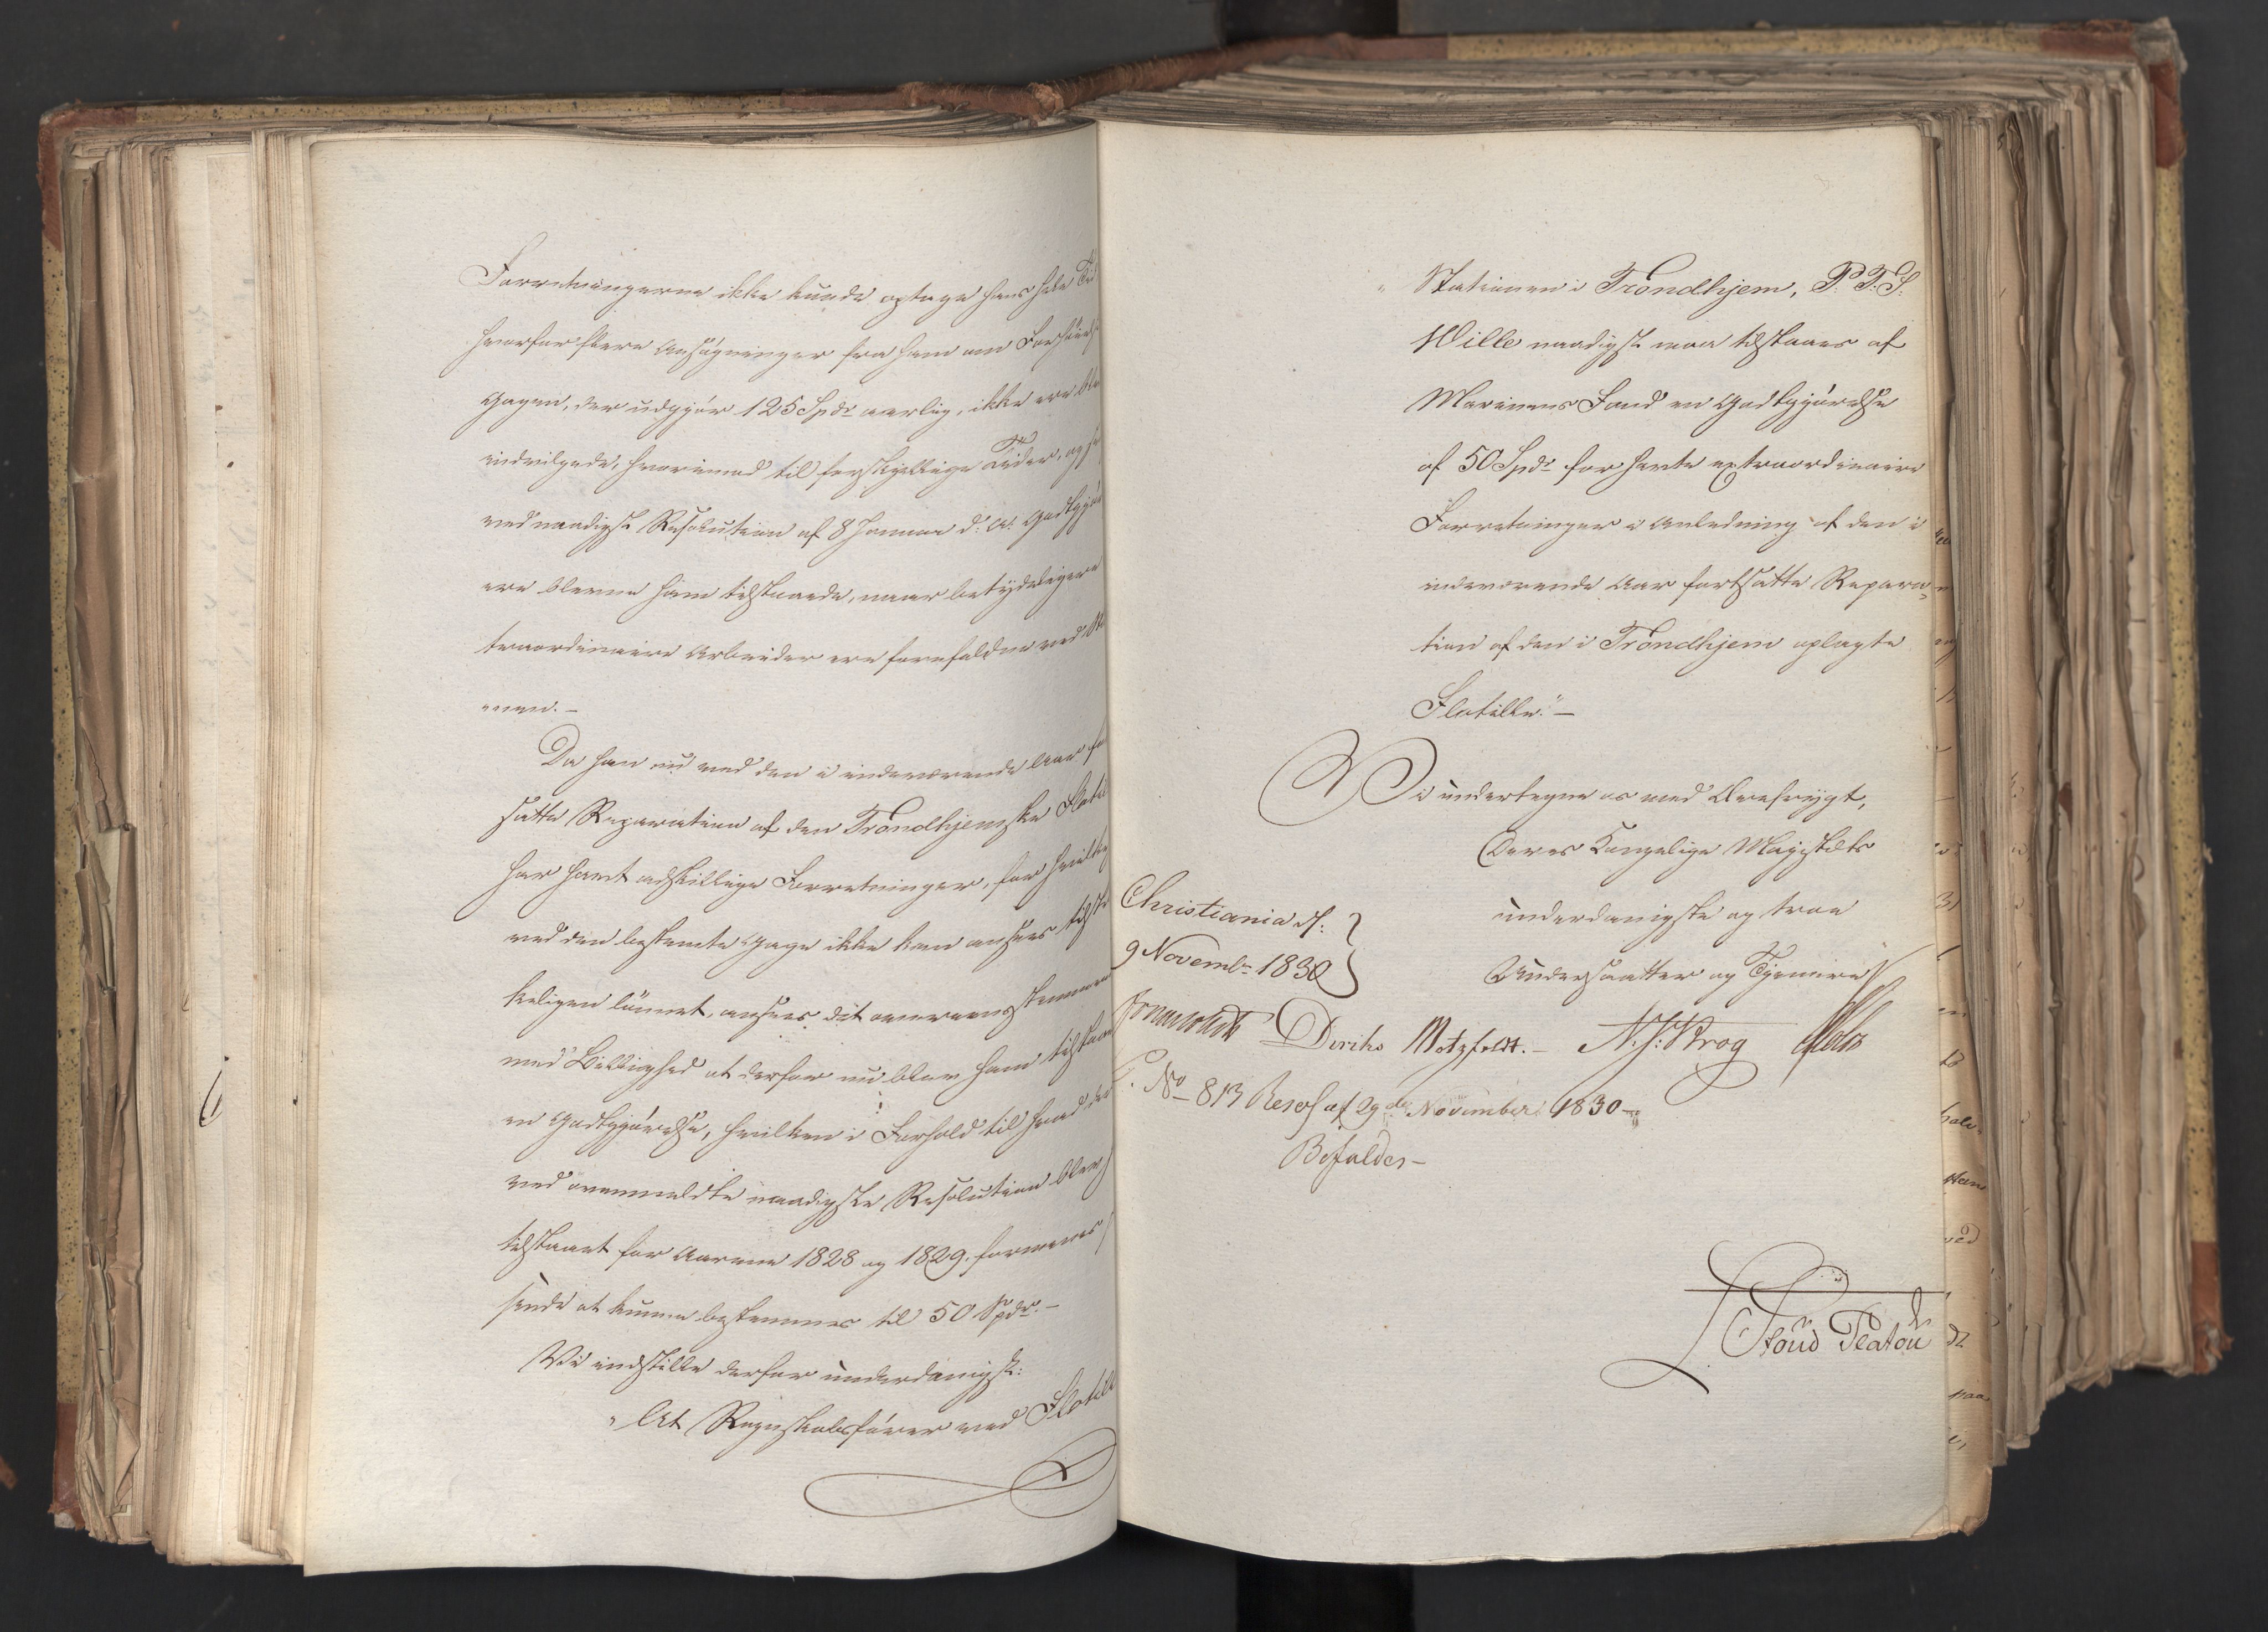 Forretningerne ikke kunde optage hans hele Tid
hvorfor flere Ansøgninger fra ham om Forhøiels
Gagen, der udgjør 125 Spdr aarlig, ikke ere ble
indvilgede, hvorimod til forskjellige Tider, og
ved naadigst Resolution af 8 Januar d: A: Godtgjør
ere blevne ham tilstaaede, naar betydeligere
traordinaire Arbeider ere forefaldne ved Sta
onen. –
Da han nu ved den i indeværende Aar fo
satte Reparation af den Trondhjemske Flotil
har havt adskillige Forretninger, for hvilke
ved den bestemte Gage ikke kan ansees tilstr
keligen lønnet, ansees det overeensstemmen
med Billighed at derfor nu blev ham tilstaae
en Godtgjørelse, hvilken i Forhold til hvad der
ved ovenmeldte naadigste Resolution blev
tilstaaet for Aarene 1828 og 1829, formenes
at kunne bestemmes til 50 Spdr. –
Vi indstille derfor underdanigst:
" At Regnskabsfører ved Flotille
" Stationen i Trondhjem, P. T. S.
Wille naadigst maa tilstaaes af
Marinens Fond en Godtgjørelse
af 50 Spdr for havte extraordinaire
Forretninger i Anledning af den i
indeværende Aar fortsatte Repara,
tion af den i Trondhjem oplagte
Flotille." –
Vi undertegne os med Ærefrygt,
Deres Kongelige Majestæts
underdanigste og troe
Undersaatter og Tjenere
Christiania d:
9 Novembr 1830
Diriks Motzfeldt. – N. J: Krog
No 813 Resol af 29de November 1830 –
Bifaldes –
Foud Platou